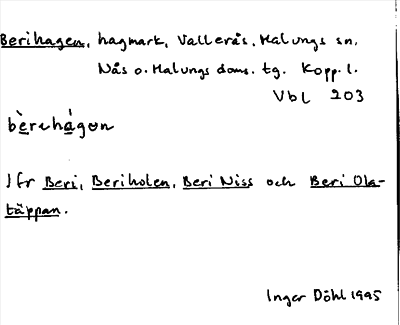 Berihagen, hagmark, Vallerås, Malungs sn,
Nås o. Malungs doms. tg. Kopp. l.
Vbl 203
bèrehágon
Jfr Beri, Beriholen, Beri Niss och Beri Ola-
täppan.
Inger Döhl 1995